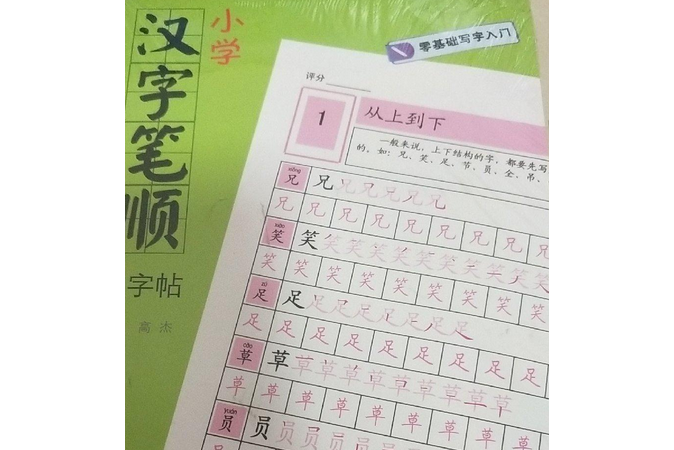 小学
汉字笔顺
字帖
高杰
零基础写字入门
评分
1
从上到下
一般来说，上下结构的字，都要先写
的，如：兄、笑、足、节、员、全、吊、
xiōng
兄 兄 兄兄兄兄兄
兄 兄 兄 兄 兄 兄 兄 兄 兄
xiào
笑 笑 笑笑笑笑笑笑笑笑笑笑
笑 笑 笑 笑 笑 笑 笑 笑 笑
zú
足 足 足足足足足足足
足 足 足 足 足 足 足 足 足
cǎo
草 草 草草草草草草草草草
草 草 草 草 草 草 草 草 草
yuán
员 员 员员员员员员员